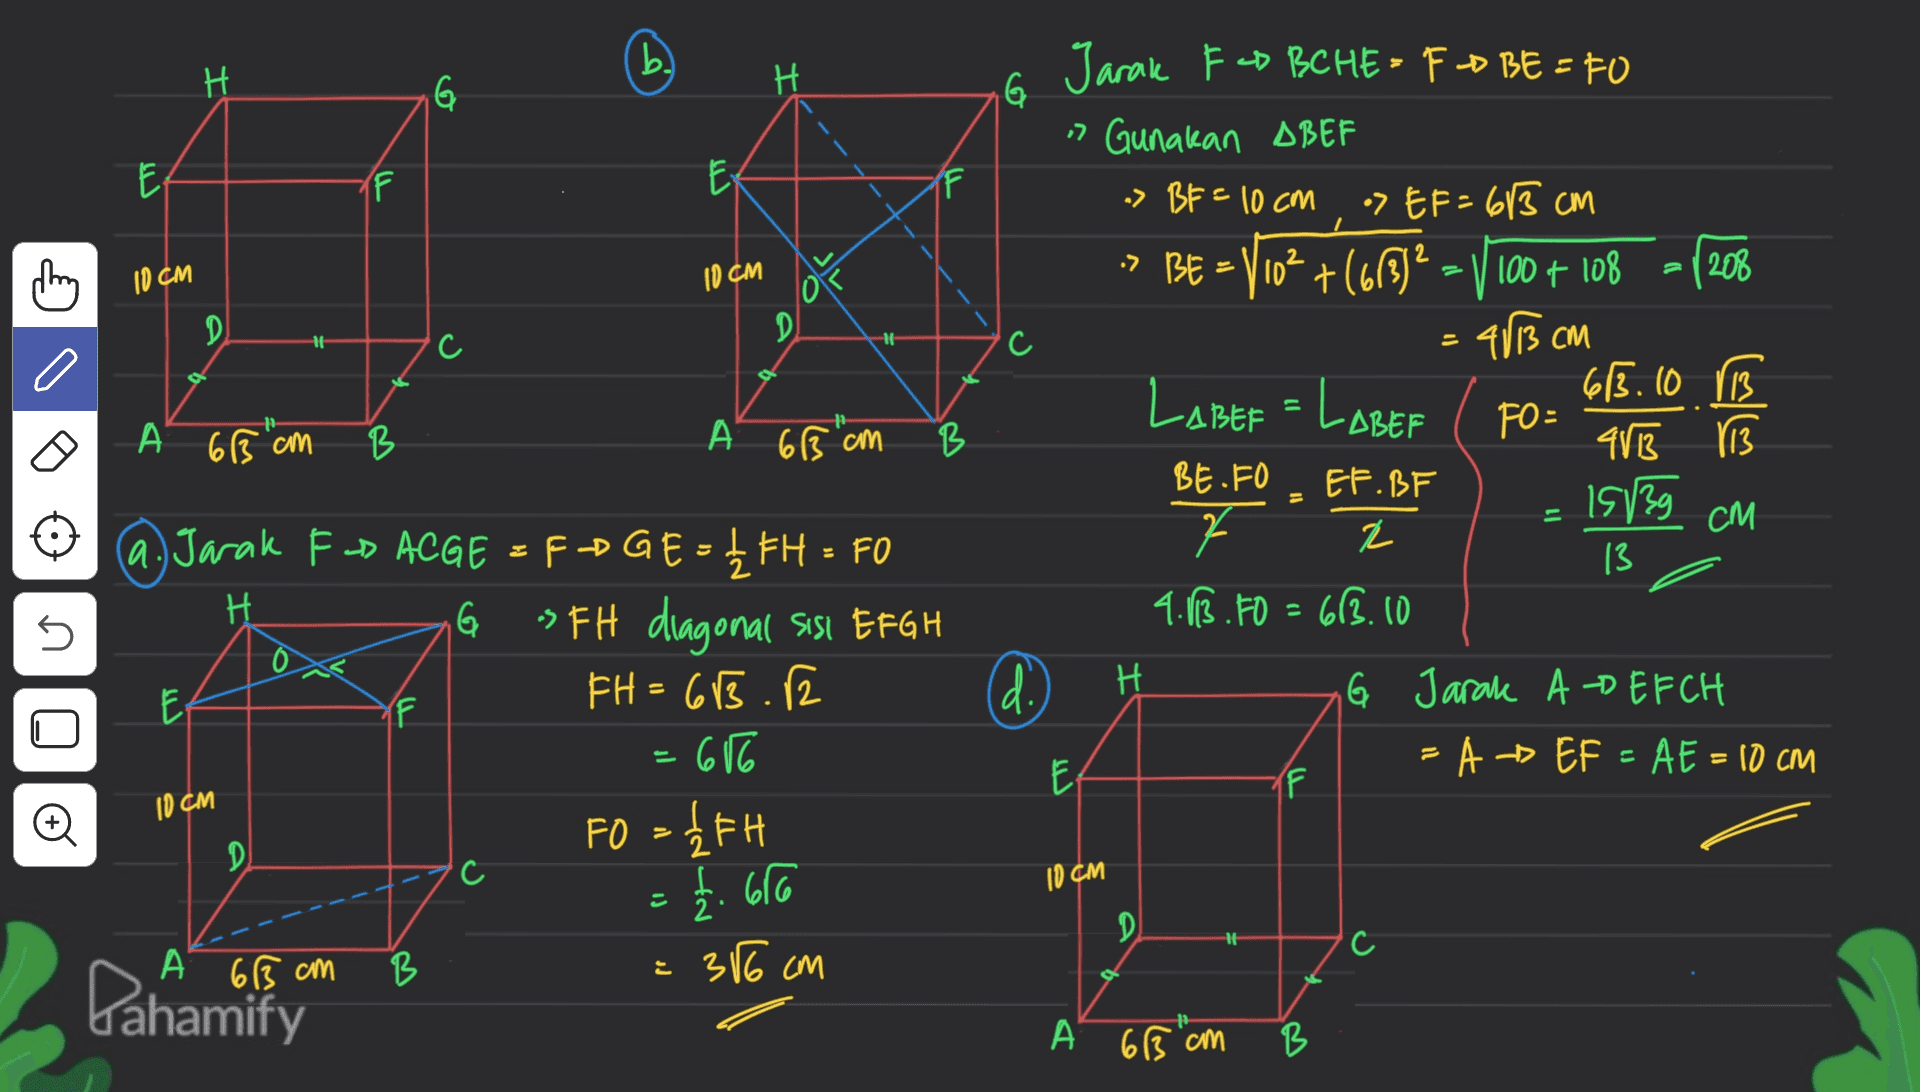 H
G
E
F
10 cm
D
C
A
6√3 cm
B
b.
H
G
E
F
10 cm
O
D
C
A
6√3 cm
B
Jarak F → BCHE = F → BE = FO
Gunakan ΔBEF
BF = 10 cm, EF = 6√3 cm
BE = √10² + (6√3)² = √100 + 108 = √208
= 4√13 cm
LΔBEF = LΔBEF
BE.FO / 2 = EF.BF / 2
4.√13.FO = 6√3.10
FO = 6√3.10 / 4√13 . √13 / √13
= 15√39 / 13 cm
a. Jarak F → ACGE = F → GE = 1/2 FH = FO
H
G
O
E
F
10 cm
D
C
A
6√3 cm
B
FH diagonal sisi EFGH
FH = 6√3 . √2
= 6√6
FO = 1/2 FH
= 1/2 . 6√6
= 3√6 cm
d.
H
G
E
F
10 cm
D
C
A
6√3 cm
B
Jarak A → EFCH
= A → EF = AE = 10 cm
Pahamify